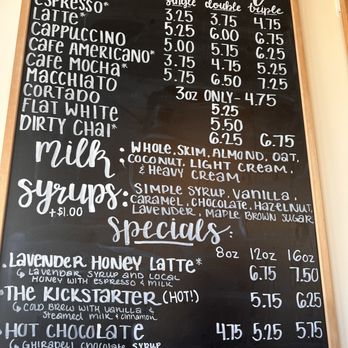 ESPRESSO* single double triple
LATTE* 3.25 3.75 4.75
CAPPUCCINO 5.25 6.00 6.75
CAFE AMERICANO* 5.00 5.75 6.25
CAFE MOCHA* 3.75 4.75 5.25
MACCHIATO 5.75 6.50 7.25
CORTADO 3oz ONLY - 4.75
FLAT WHITE 5.25
DIRTY CHAI* 5.50
6.25 6.75
milk: WHOLE, SKIM, ALMOND, OAT,
COCONUT, LIGHT CREAM,
& HEAVY CREAM
syrups: SIMPLE SYRUP, VANILLA,
+$1.00 CARAMEL, CHOCOLATE, HAZELNUT,
LAVENDER, MAPLE BROWN SUGAR
specials:
8oz 12oz 16oz
• LAVENDER HONEY LATTE* 6.75 7.50
↳ LAVENDER SYRUP AND LOCAL
HONEY WITH ESPRESSO & MILK
• THE KICKSTARTER (HOT!) 5.75 6.25
↳ COLD BREW WITH VANILLA &
STEAMED MILK & CINNAMON
• HOT CHOCOLATE 4.75 5.25 5.75
↳ GHIRADELI CHOCOLATE SYRUP